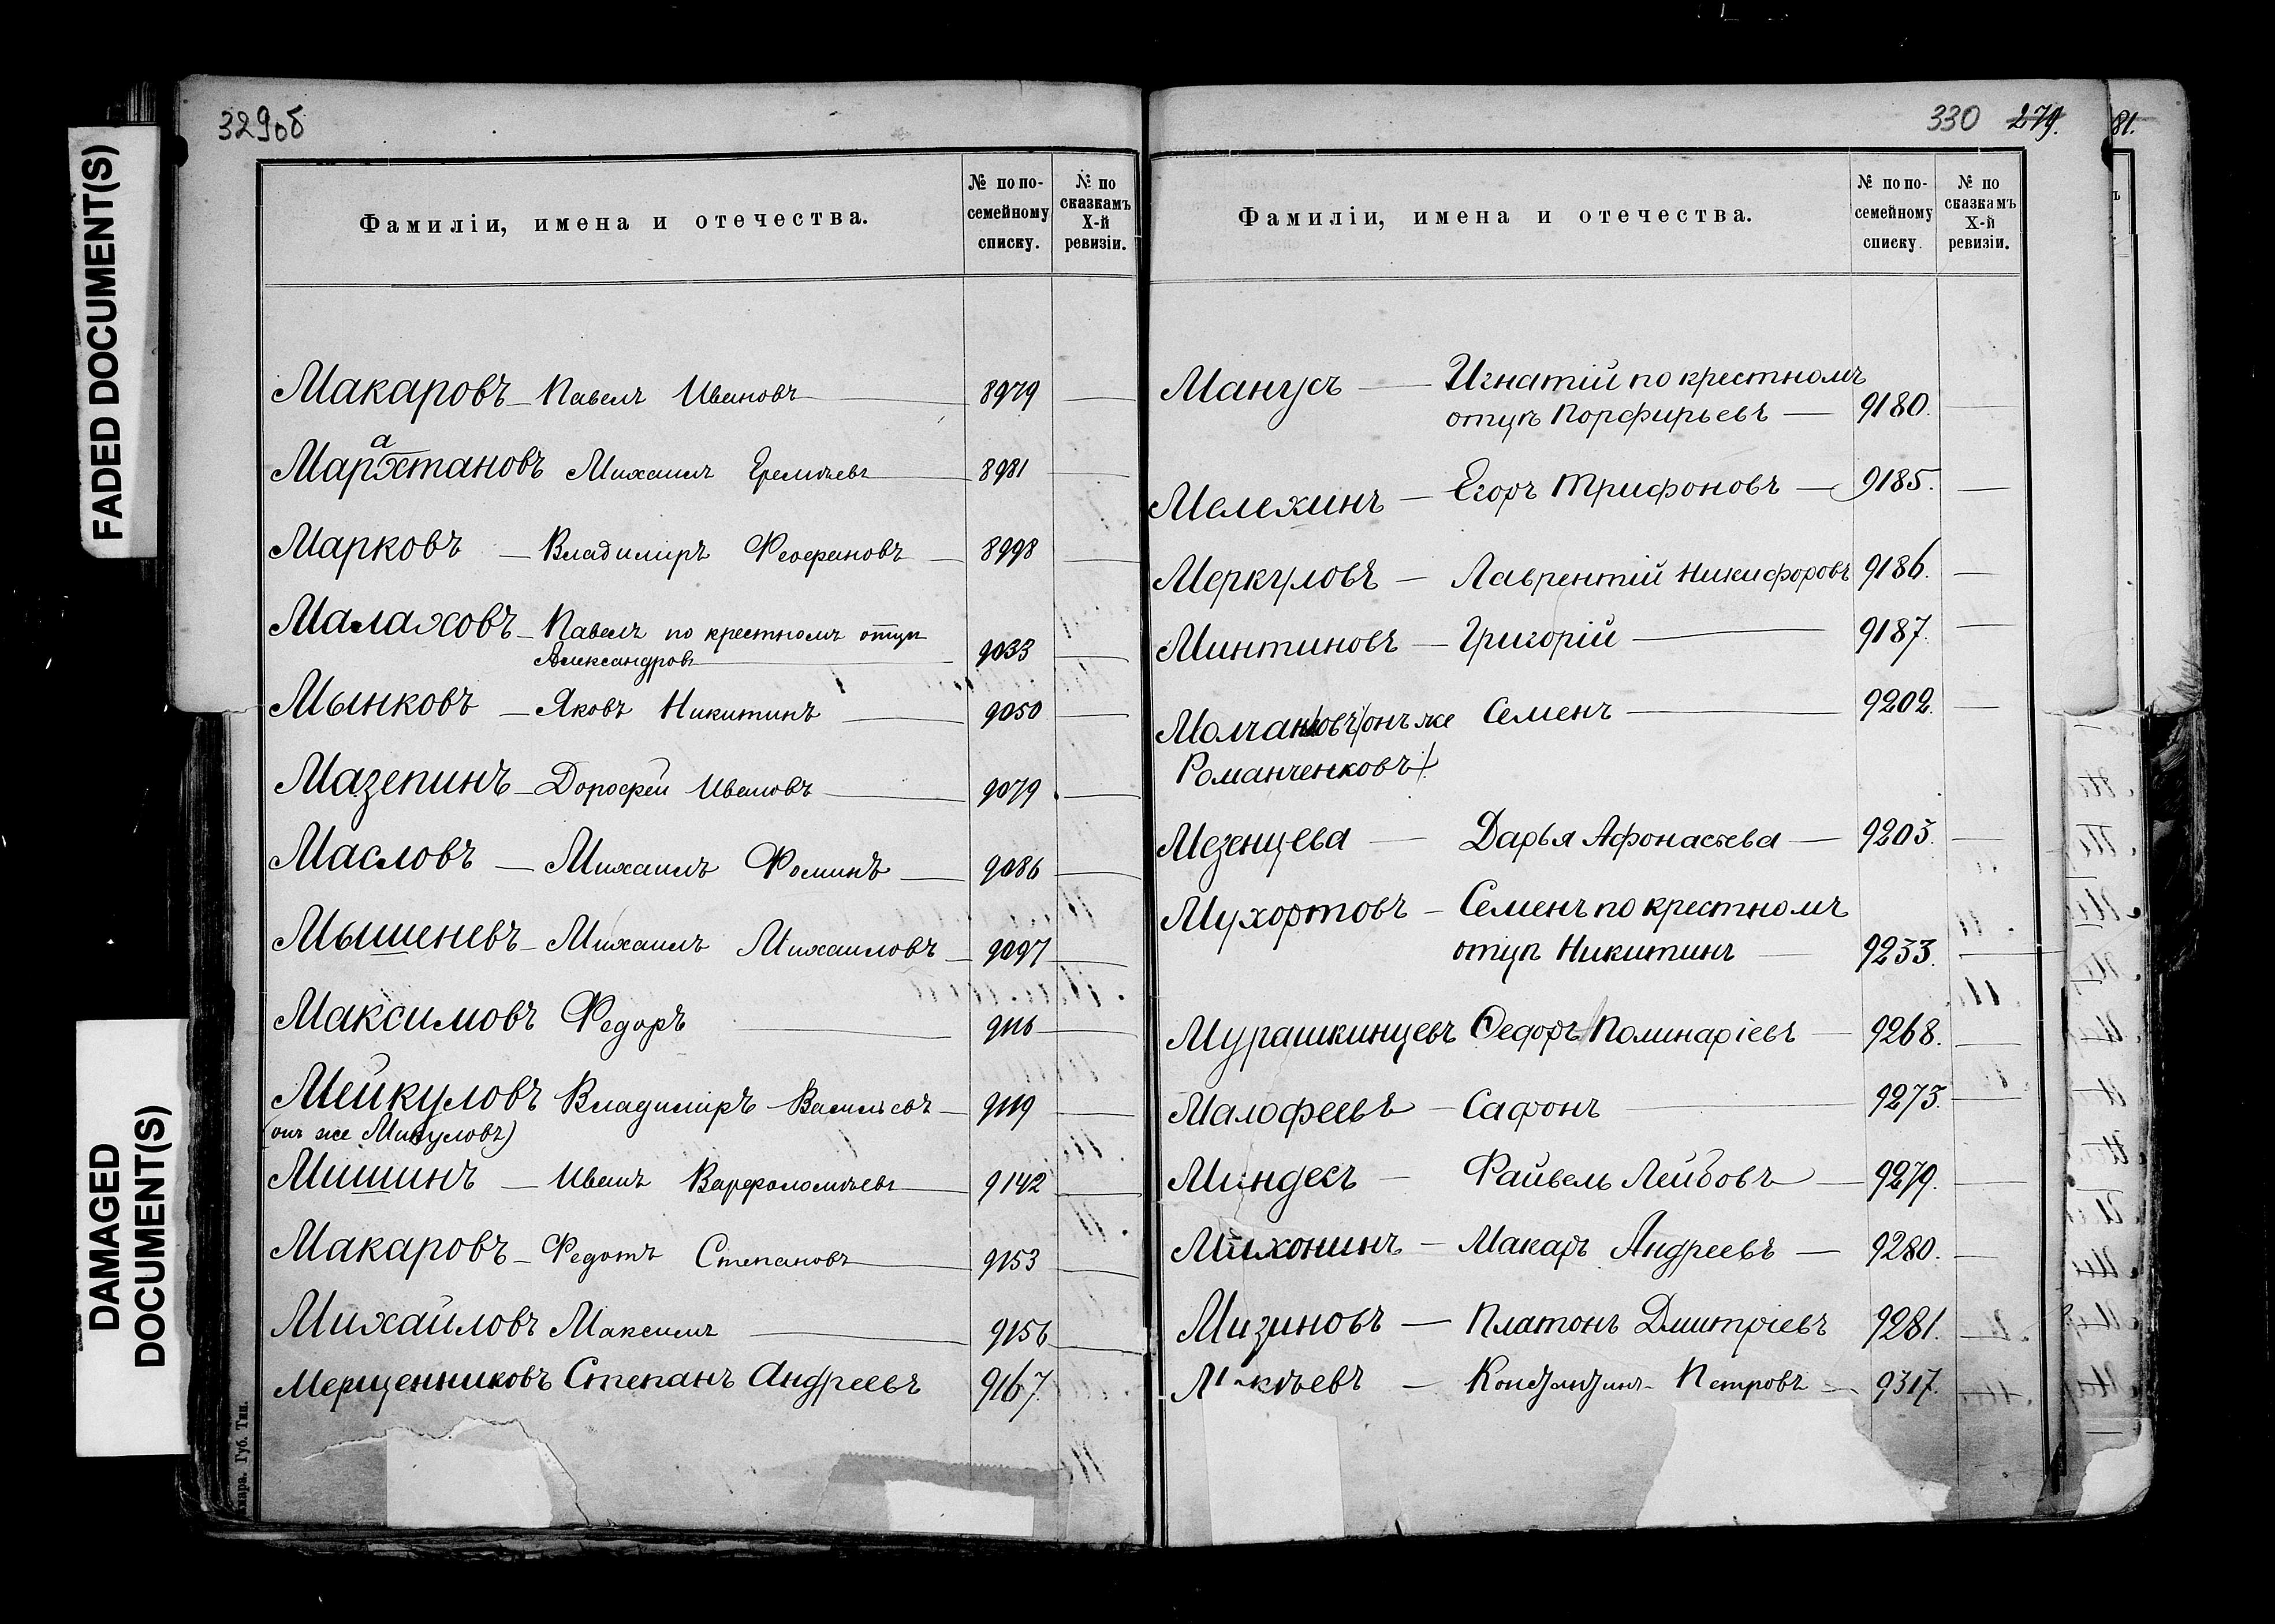 FADED DOCUMENT(S)
DAMAGED
DOCUMENT(S)
329об
Фамиліи, имена и отечества.
№ по по-
семейному
списку.
№ по
сказкамъ
X-й
ревизіи.
Макаровъ Павелъ Ивановъ 8979
Марахтановъ Михаилъ Еремѣевъ 8981
Марковъ Владиміръ Феофановъ 8998
Малаховъ Павелъ по крестному отцу
Александровъ 9033
Мынковъ Яковъ Никитинъ 9050
Мазепинъ Дорофей Ивановъ 9079
Масловъ Михаилъ Фоминъ 9086
Мышеневъ Михаилъ Михаиловъ 9097
Максимовъ Федоръ 9116
Мейкуловъ Владиміръ Васильевъ 9119
(онъ же Микуловъ)
Мишинъ Иванъ Варфоломѣевъ 9142
Макаровъ Федотъ Степановъ 9153
Михайловъ Максимъ 9156
Мерщенниковъ Степанъ Андреевъ 9167.
Губ. Тип.
330 279.
81.
Фамиліи, имена и отечества.
№ по по-
семейному
списку.
№ по
сказкамъ
X-й
ревизіи.
Манусъ Игнатій по крестномъ
отцѣ Порфирьевъ 9180.
Мелехинъ Егоръ Трифоновъ 9185.
Меркуловъ Лаврентій Никифоровъ 9186.
Минтиновъ Григорій 9187.
Молчановъ/онъ же Семенъ 9202.
Романченковъ/.
Мезенцева Дарья Афонасьева 9203.
Мухортовъ Семенъ по крестномъ
отцѣ Никитинъ 9233.
Мурашкинцевъ Федоръ Полинаріевъ 9268.
Малофеевъ Сафонъ 9273.
Миндесъ Файвель Лейбовъ 9279.
Михонинъ Макаръ Андреевъ 9280.
Мизиновъ Платонъ Дмитріевъ 9281.
Константинъ Петровъ 9317.